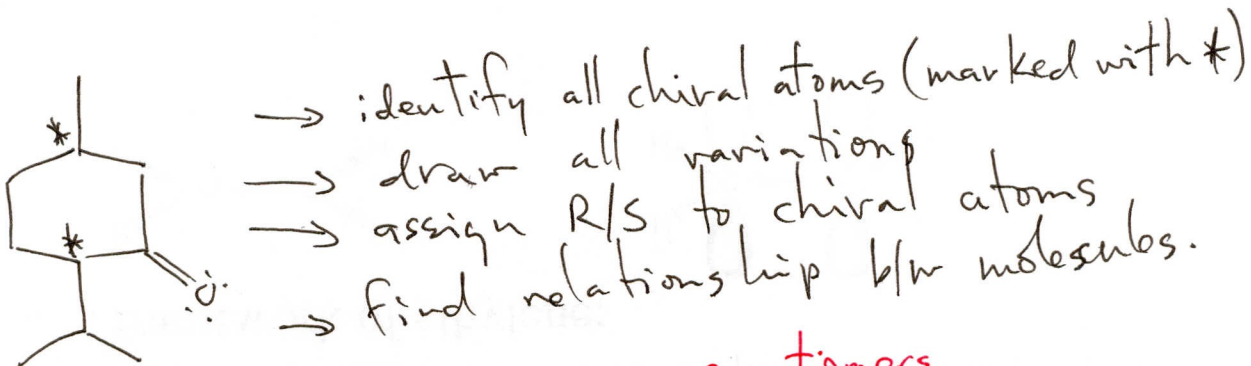 → identify all chiral atoms (marked with *)
→ draw all variations
→ assign R/S to chiral atoms
→ find relationship b/w molesules.
* 
* 
:O: